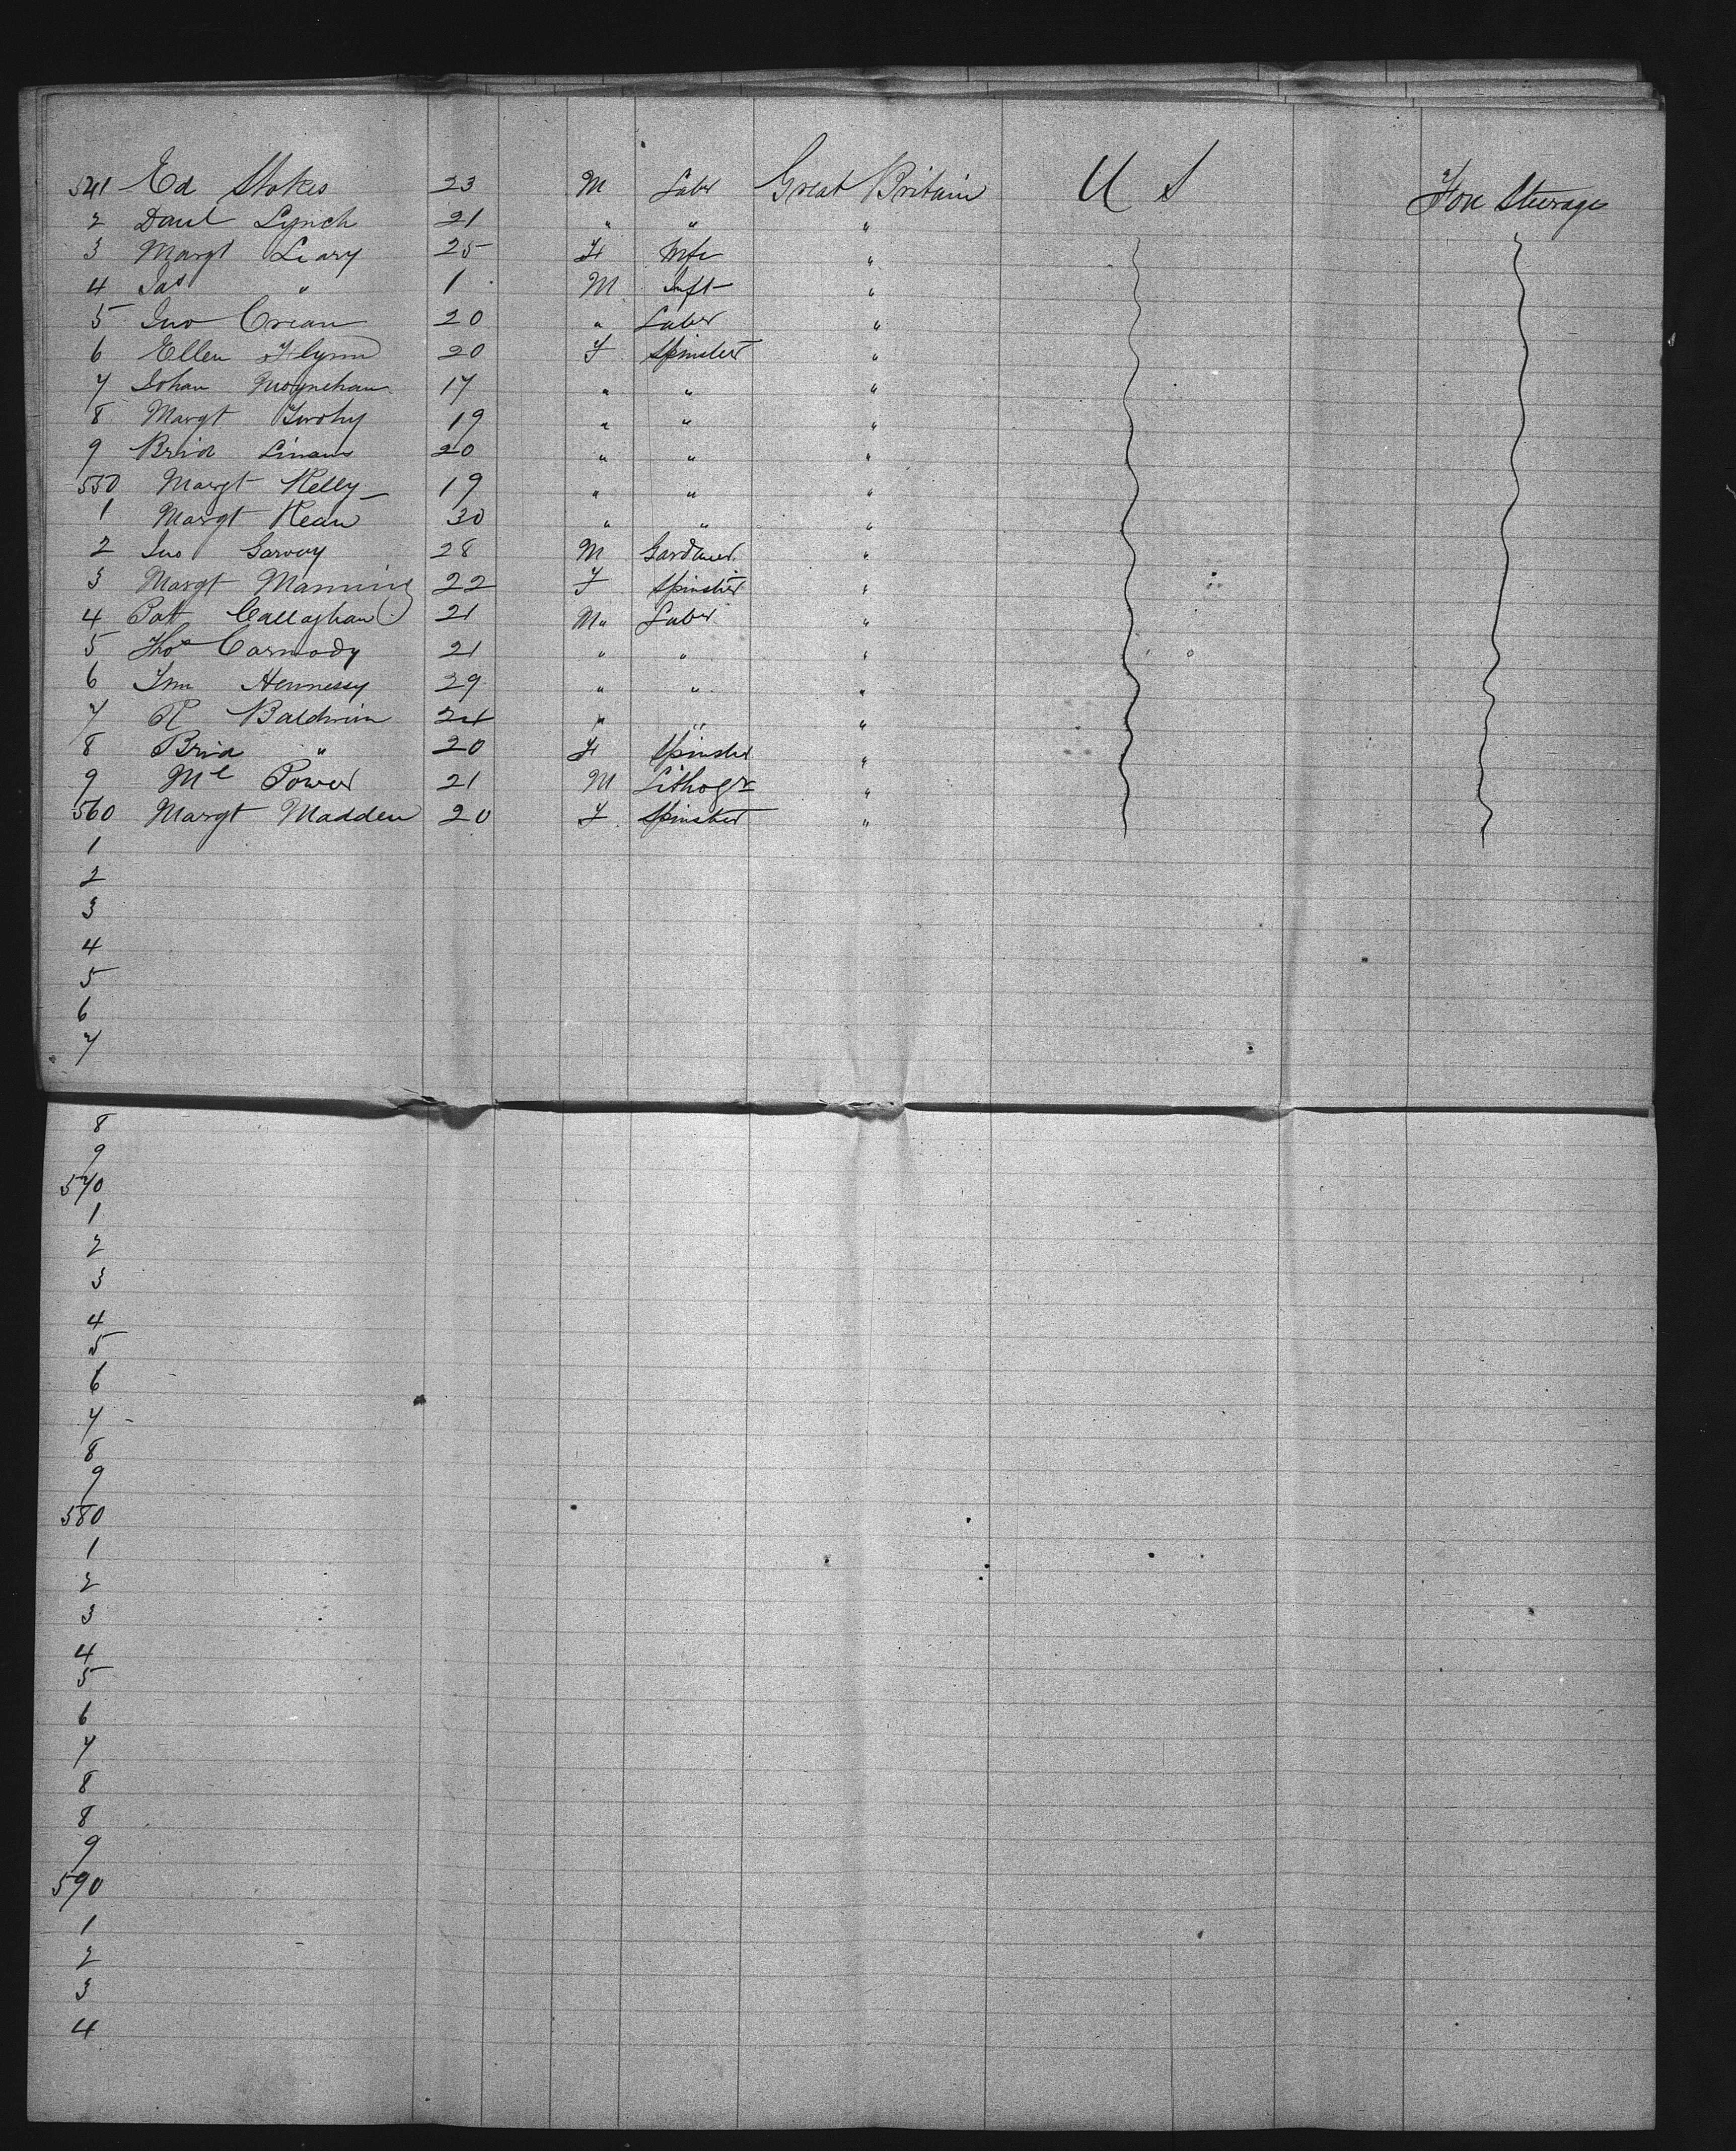 541 Ed Stokes 23 M Labr Great Britain U S For Steerage
2 Danl Lynch 21 " " "
3 Margt Leary 25 F Wife "
4 Jas " 1 M Inft "
5 Jno Crean 20 " Labr "
6 Ellen Flynn 20 F Spinster "
7 Johan Moynehan 17 " " "
8 Margt Twohy 19 " " "
9 Brid 20 " " "
550 Margt Kelly 19 " " "
1 Margt Kean 30 " " "
2 Jno Garvey 28 M Gardener "
3 Margt Manning 22 F Spinster "
4 Patt Callaghan 21 M " Labr "
5 Thos Carmody 21 " " "
6 Hennessy 29 " " "
7 R Baldwin 24 " " "
8 Brid " 20 F Spinster "
9 Ml Power 21 M Lithogr "
560 Margt Madden 20 F Spinster "
1
2
3
4
5
6
7
8
9
570
1
2
3
4
5
6
7
8
9
580
1
2
3
4
5
6
7
8
8
9
590
1
2
3
4